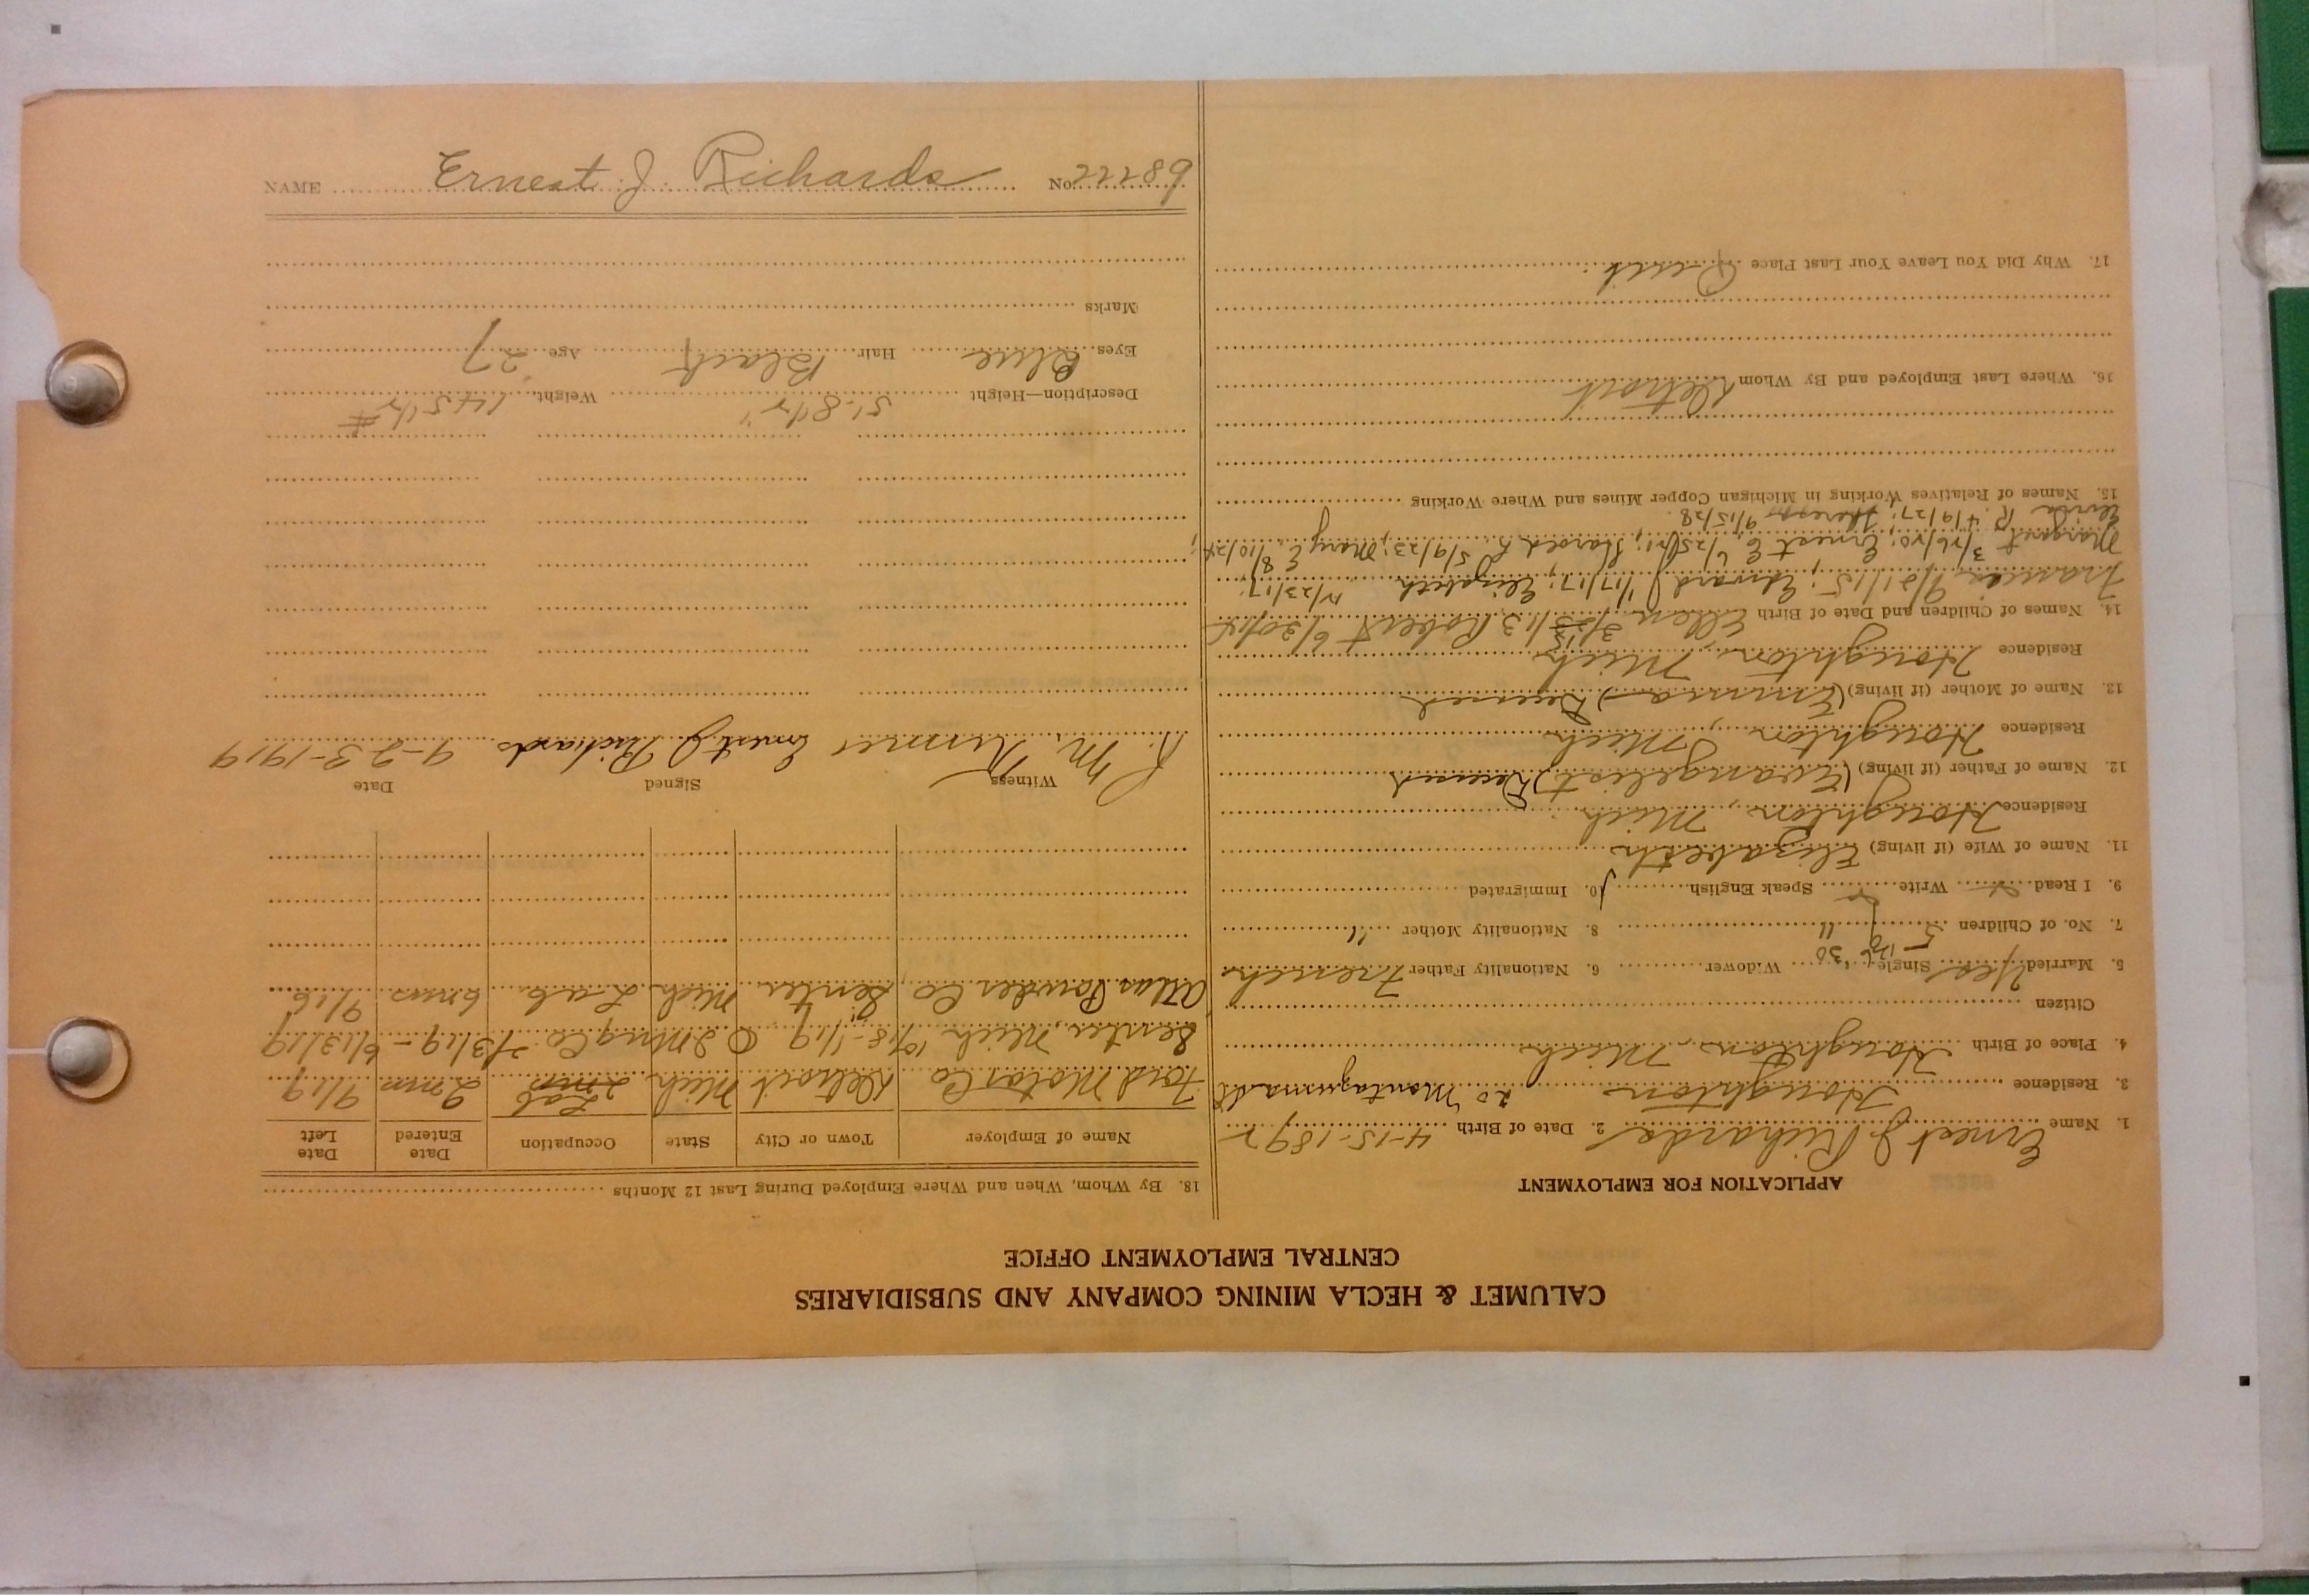 CALUMET & HECLA MINING COMPANY AND SUBSIDIARIES
CENTRAL EMPLOYMENT OFFICE
APPLICATION FOR EMPLOYMENT
1. Name Ernest J Richards 2. Date of Birth 4-15-1892
3. Residence Houghton 20 Montezuma St
4. Place of Birth Houghton, Mich
Citizen
5. Married Yes Single Widower 6. Nationality Father French
7. No. of Children 5 8. Nationality Mother "
9. I Read Write Speak English 10. Immigrated
11. Name of Wife (if living) Elizabeth
Residence Houghton, Mich
12. Name of Father (if living) (Evangelist) Deceased
Residence Houghton, Mich
13. Name of Mother (if living) (Emma) Deceased
Residence Houghton, Mich
14. Names of Children and Date of Birth Ellen 3/ /13 Robert 6/30/14
Frances 9/21/15; Edward J 1/17/17; Elizabeth 12/23/17;
Margaret 3/26/20; Ernest E 6/25/21; Harold L 5/9/23; Mary E 8/10/24;
R. 4/9/27; Theresa 9/15/28
15. Names of Relatives Working in Michigan Copper Mines and Where Working
16. Where Last Employed and By Whom Detroit
17. Why Did You Leave Your Last Place Quit
18. By Whom, When and Where Employed During Last 12 Months
Name of Employer Town or City State Occupation Date Entered Date Left
Ford Motor Co Detroit Mich Lab 2 mos 9/19
Senter, Mich 10/18-1/19 Q Mng Co 2/3/19 - 6/13/19
Atlas Powder Co, Senter Mich Lab 6 mos 9/16
Witness Signed Date
R. M. Ernest J Richards 9-23-1919
Description—Height 5'-8 1/2" Weight 145 1/2 #
Eyes Blue Hair Black Age 27
Marks
NAME Ernest J. Richards No. 22289